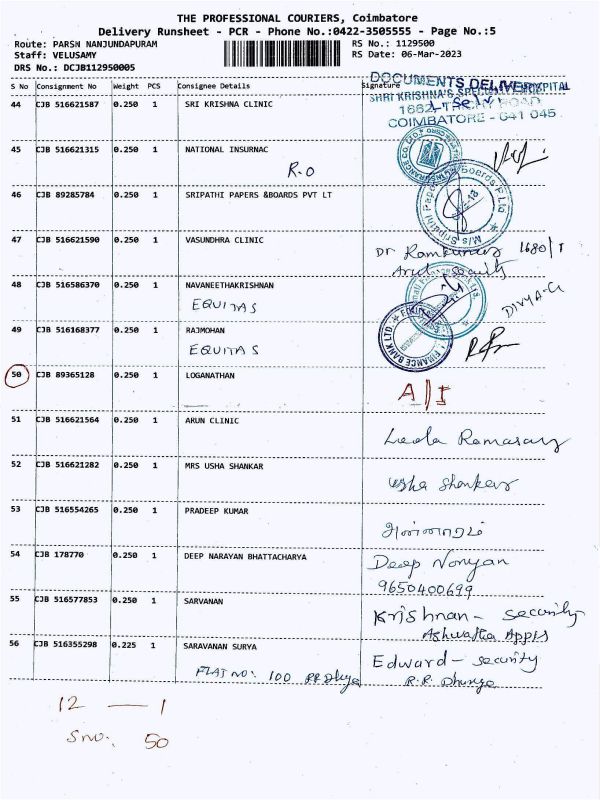 THE PROFESSIONAL COURIERS, Coimbatore
Delivery Runsheet - PCR - Phone No.:0422-3505555 - Page No.:5
Route: PARSN NANJUNDAPURAM RS No.: 1129500
Staff: VELUSAMY RS Date: 06-Mar-2023
DRS No.: DCJB112950005
S No Consignment No Weight PCS Consignee Details Signature
DOCUMENTS DELIVERY
44 CJB 516621587 0.250 1 SRI KRISHNA CLINIC
SHRI KRISHNA'S HOSPITAL
1662 ROAD
COIMBATORE - 641 045
45 CJB 516621315 0.250 1 NATIONAL INSURNAC
R.O
46 CJB 89285784 0.250 1 SRIPATHI PAPERS &BOARDS PVT LT
M/s Sripathi Paper Boards P Ltd
47 CJB 516621590 0.250 1 VASUNDHRA CLINIC
Dr Ramkumar 1680/1
48 CJB 516586370 0.250 1 NAVANEETHAKRISHNAN
EQUITAS
DIVYA-G
49 CJB 516168377 0.250 1 RAJMOHAN
EQUITAS
FINANCE BANK LTD.
50 CJB 89365128 0.250 1 LOGANATHAN
A/I
51 CJB 516621564 0.250 1 ARUN CLINIC
Leela Ramasamy
52 CJB 516621282 0.250 1 MRS USHA SHANKAR
Usha Shankar
53 CJB 516554265 0.250 1 PRADEEP KUMAR
54 CJB 178770 0.250 1 DEEP NARAYAN BHATTACHARYA
Deep Noryan
9650400699
55 CJB 516577853 0.250 1 SARVANAN
Krishnan - security
Ashwatha Appts
56 CJB 516355298 0.225 1 SARAVANAN SURYA
Edward - security
FLAT NO: 100
12 — 1
S no: 50